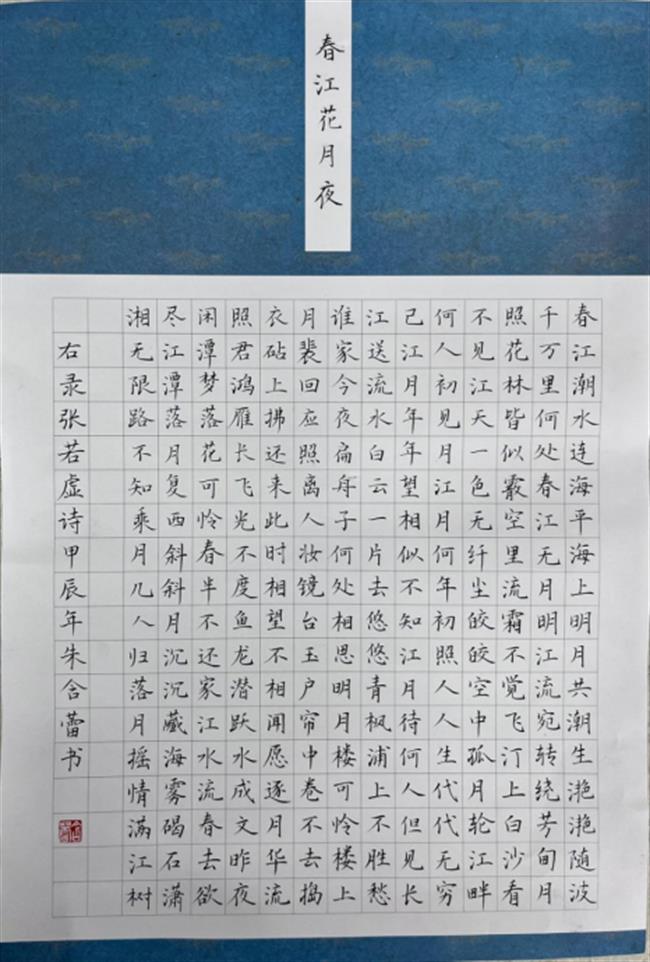 春江花月夜
春江潮水连海平海上明月共潮生滟滟随波
千万里何处春江无月明江流宛转绕芳甸月
照花林皆似霰空里流霜不觉飞汀上白沙看
不见江天一色无纤尘皎皎空中孤月轮江畔
何人初见月江月何年初照人人生代代无穷
已江月年年望相似不知江月待何人但见长
江送流水白云一片去悠悠青枫浦上不胜愁
谁家今夜扁舟子何处相思明月楼可怜楼上
月裴回应照离人妆镜台玉户帘中卷不去捣
衣砧上拂还来此时相望不相闻愿逐月华流
照君鸿雁长飞光不度鱼龙潜跃水成文昨夜
闲潭梦落花可怜春半不还家江水流春去欲
尽江潭落月复西斜斜月沉沉藏海雾碣石潇
湘无限路不知乘月几人归落月摇情满江树
右录张若虚诗甲辰年朱含蕾书